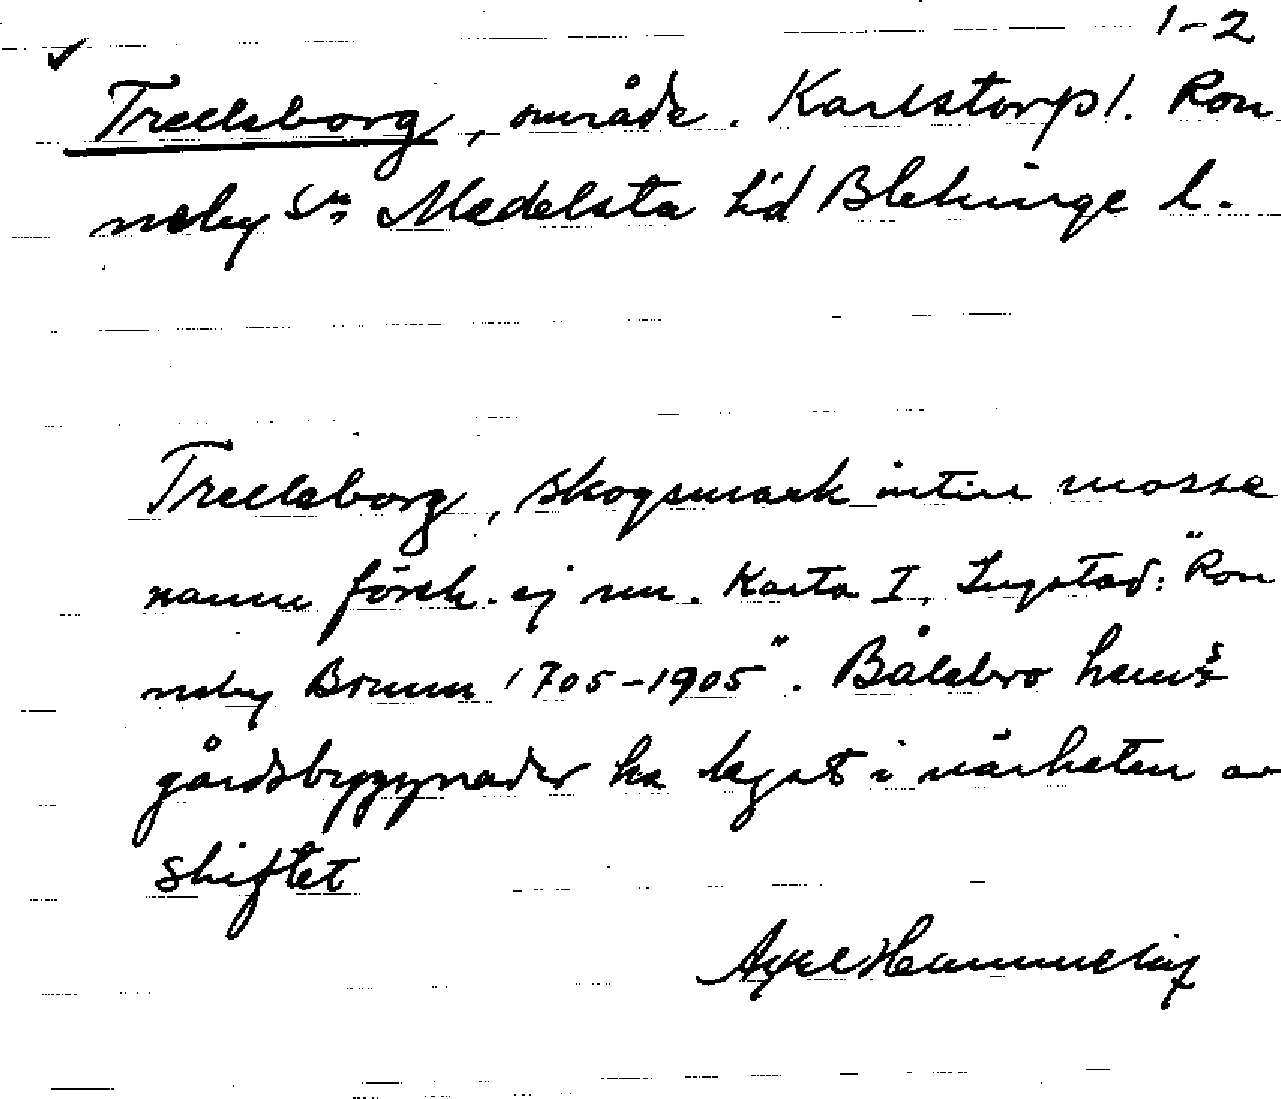 1-2
Trelleborg, område. Karlstorp 1. Ron
neby Sn Medelsta hd Blekinge l.
Trelleborg, skogsmark intill mosse
namn försk. ej nu. Karta I, "Ron
neby Brunn 1705-1905". Bålebro hem:s
gårdsbyggnader ha legat i närheten av
skiftet
Axel